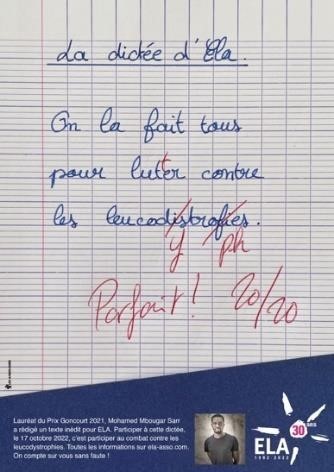 La dictée d'Ela.
On la fait tous
pour lutter contre
les leucodistrofies.
y ph
Parfait! 20/20
Lauréat du Prix Goncourt 2021, Mohamed Mbougar Sarr
a rédigé un texte inédit pour ELA. Participer à cette dictée,
le 17 octobre 2022, c'est participer au combat contre les
leucodystrophies. Toutes les informations sur ela-asso.com.
On compte sur vous sans faute !
30 ANS
ELA
1992-2022